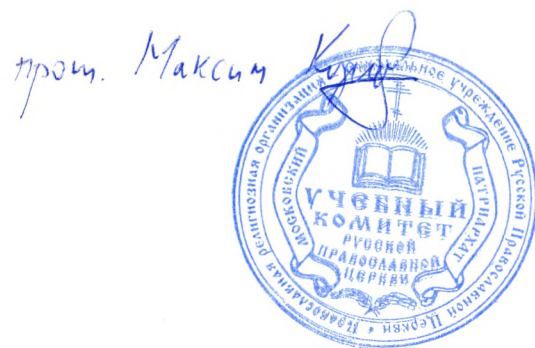 прот. Максим
Православная религиозная организация учреждение Русской Православной Церкви
МОСКОВСКИЙ
ПАТРИАРХАТ
УЧЕБНЫЙ
КОМИТЕТ
РУССКОЙ
ПРАВОСЛАВНОЙ
ЦЕРКВИ